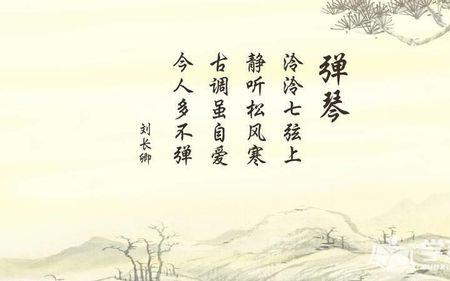 弹琴
泠泠七弦上
静听松风寒
古调虽自爱
今人多不弹
刘长卿
学